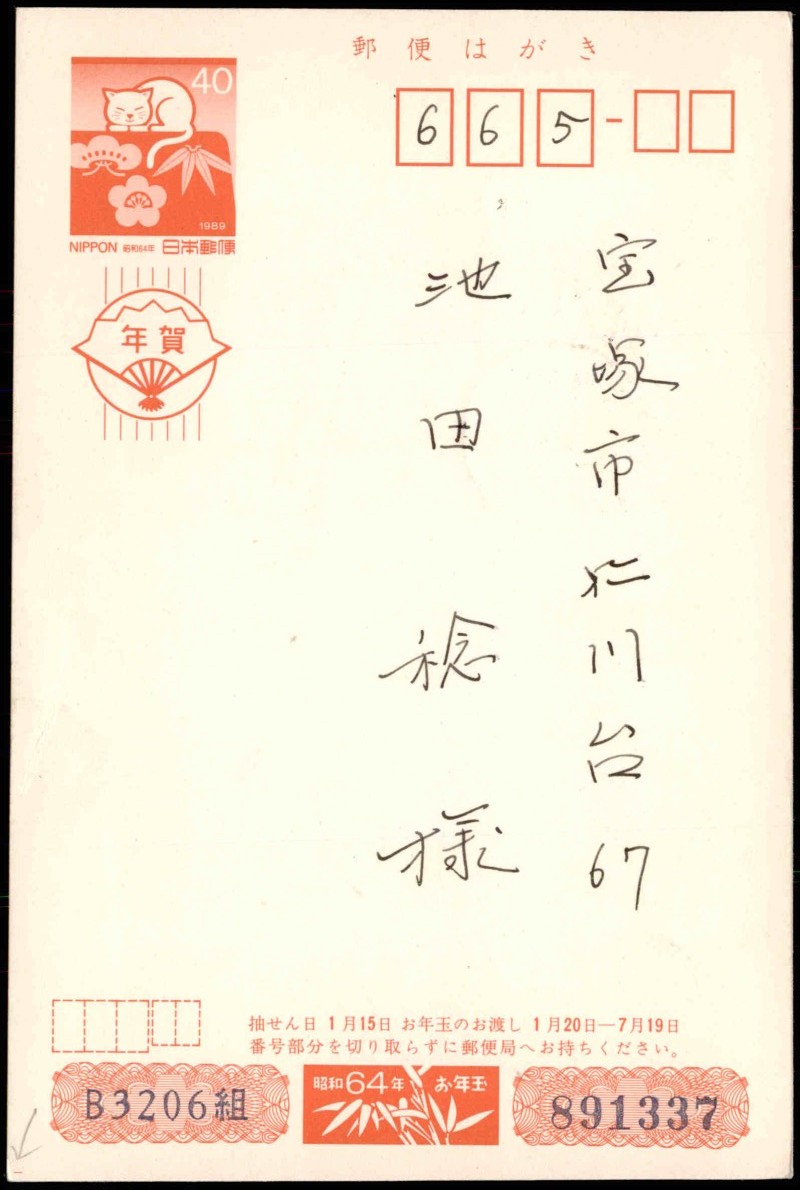 郵便はがき
40
1989
NIPPON 昭和64年 日本郵便
年賀
665-
宝塚市仁川台67
池田稔様
抽せん日 1月15日 お年玉のお渡し 1月20日—7月19日
番号部分を切り取らずに郵便局へお持ちください。
B3206組
昭和64年 お年玉
891337